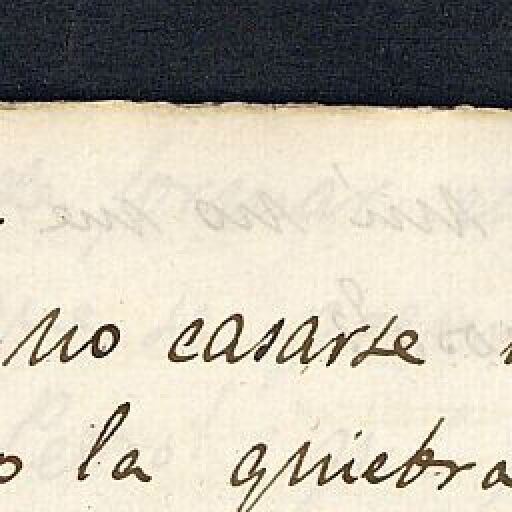 no casarse
la quiebra